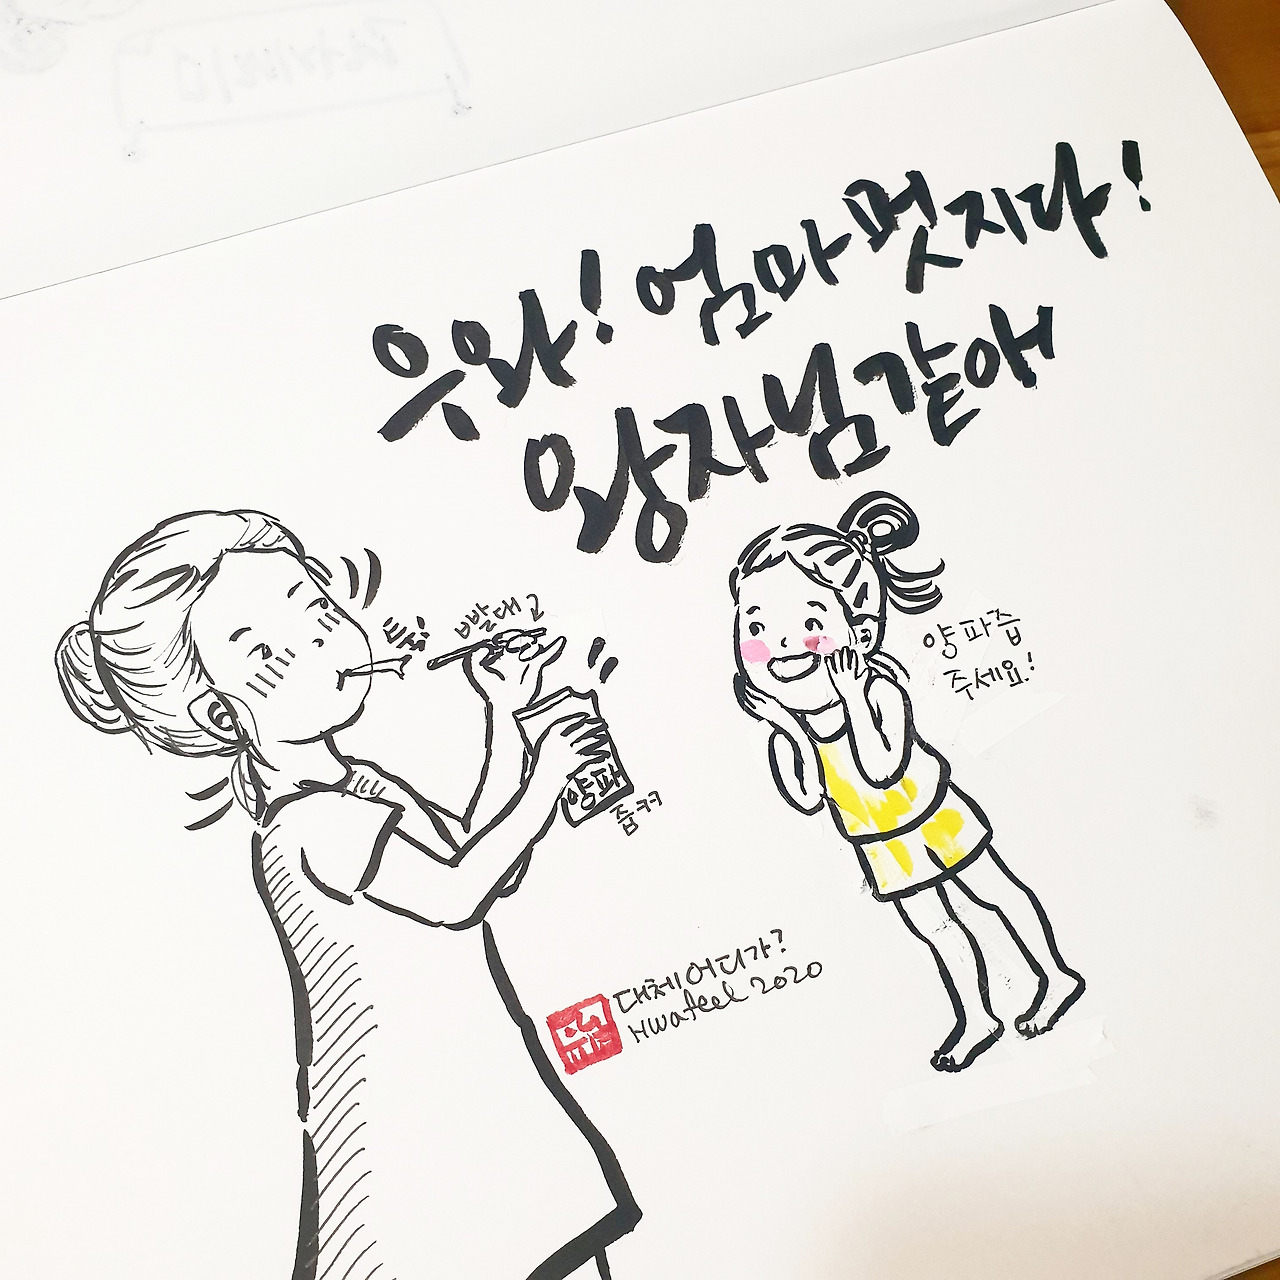 우와! 엄마 멋지다!
왕자님 같애
툭!
빨대고
양파즙
주세요!
양파
즙ㅋㅋ
대체어디가?
Hwafeel 2020